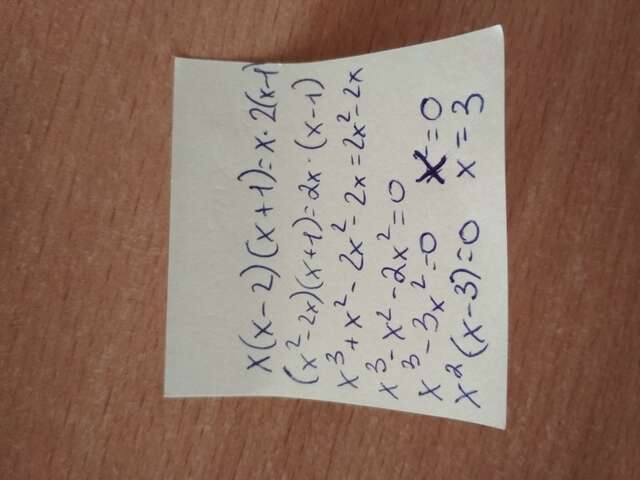 x(x-2)(x+1)=x·2(x-1)
(x²-2x)(x+1)=2x·(x-1)
x³+x²-2x²-2x=2x²-2x
x³-x²-2x²=0
x³-3x²=0 x²=0
x²(x-3)=0 x=3